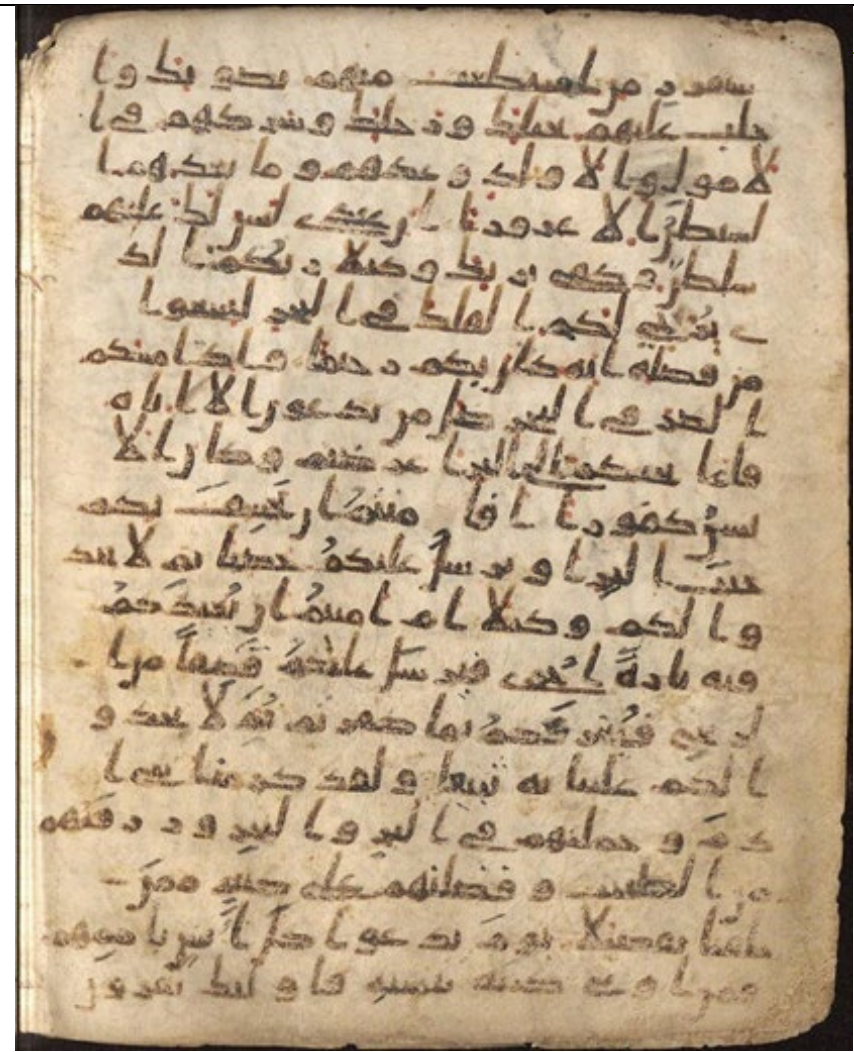 ستفزز من استطعت منهم بصوتك وا
جلب عليهم بخيلك ورجلك وشركهم في ا
لامول والاولد وعدهم وما يعدهم ا
لشيطن الا غرورا ان عبدي ليس لك عليهم
سلطن وكفى بربك وكيلا ربكم الذ
ي يزجي لكم الفلك في البحر لتبتغوا
من فضله انه كان بكم رحيما واذا مسكم
الضر في البحر ضل من تدعون الا اياه
فلما نجيكم الى البر اعرضتم وكان الا
نسن كفورا افا منتم ان يخسف بكم
جنب البر او يرسل عليكم حصبا ثم لا تجد
وا لكم وكيلا ام امنتم ان يعيدكم
فيه تارة اخرى فيرسل عليكم قصفا من ا
لريح فيغرقكم بما كفرتم ثم لا تجدو
ا لكم علينا به تبيعا ولقد كرمنا بني ا
دم وحملنهم في البر والبحر ورزقنهم
من الطيبت وفضلنهم على كثير ممن
خلقنا تفضيلا يوم ندعوا كل اناس باممهم
فمن اوتي كتبه بيمينه فاولئك يقرون